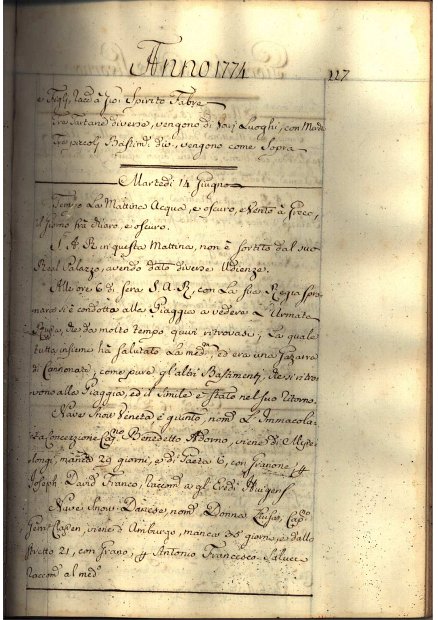 Anno 1774
227
e Figli, racc.ti à Gio: Spirito Fabre
Tre Tartane diverse, vengono di Varj Luoghi, con
Tre piccoli Bastim.ti div., vengono come Sopra
Martedì 14 Giugno
Tempo La Mattina Acqua, e oscuro, e Vento à Greco,
il giorno frà chiaro, e oscuro.
S. A. R. in questa Mattina, non è sortito dal suo
Real Palazzo, avendo dato diverse Udienze.
Alle ore 6 di sera S. A. R. con La Sua Regia
si è condotta alla Piaggia a vedere L'Armata
Russa, che da molto tempo quivi ritrovasi; La quale
tutta insieme hà Salutato La med.ma, ed era una
di Cannonate, come pure gl'altri Bastimenti, che si ritro
vono alla Piaggia, ed il Simile è stato nel suo Ritorno.
Nave Snow Veneta è giunto, nom.ta L'Immacola
ta Concezzione Cap.no Benedetto Adorno, viene di Misse
longi, manca 29 giorni, e di Gaeta 6, con Granone; p
Joseph David Franco, raccom.to a gl'Eredi Huigens
Nave Snow Danese, nom.ta Donna Cap.no
Gerrit Clasen, viene d'Amburgo, manca 35 giorni, e dallo
Stretto 21, con Grano; p Antonio Francesco Salucci
raccom.to al med.o